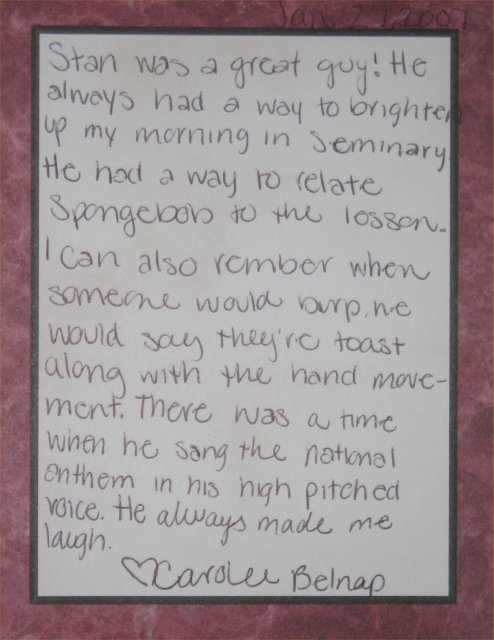 Jan 27, 2007
Stan was a great guy! He
always had a way to brighten
up my morning in Seminary.
He had a way to relate
Spongebob to the lesson.
I can also rember when
someone would burp, he
would say they're toast
along with the hand move-
ment. There was a time
when he sang the national
anthem in his high pitched
voice. He always made me
laugh.
♡Carolee Belnap